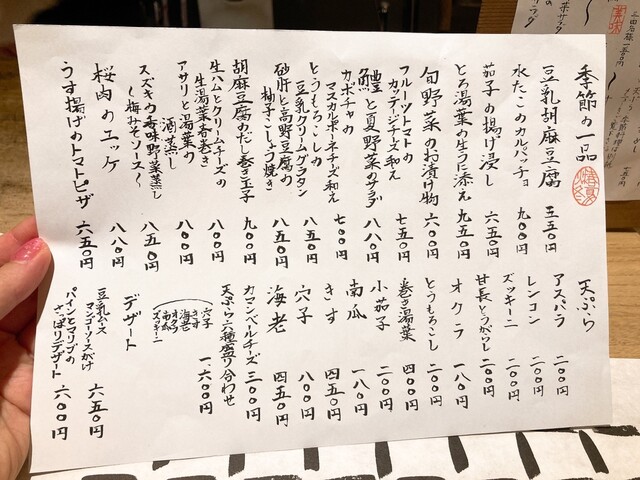 季節の一品
豆乳胡麻豆腐 五五〇円
水たこのカルパッチョ 九〇〇円
茄子の揚げ浸し 六五〇円
とろ湯葉の生うに添え 九五〇円
旬野菜のお漬け物 六〇〇円
フルーツトマトの
カッテージチーズ和え 七五〇円
鱧と夏野菜のサラダ 八八〇円
カボチャの
マスカルポーネチーズ和え 七〇〇円
とうもろこしの
豆乳クリームグラタン 八五〇円
砂肝と高野豆腐の
柚子こしょう焼き 八五〇円
胡麻豆腐のだし巻き玉子 九〇〇円
生ハムとクリームチーズの
生湯葉春巻き 八〇〇円
アサリと湯葉の
酒蒸し 八〇〇円
スズキの香味野菜蒸し
〜梅みそソース〜 八五〇円
桜肉のユッケ 八八〇円
うす揚げのトマトピザ 六五〇円
天ぷら
アスパラ 二〇〇円
レンコン 二〇〇円
ズッキーニ 二〇〇円
甘長とうがらし 二〇〇円
オクラ 一八〇円
とうもろこし 二〇〇円
巻き湯葉 四〇〇円
小茄子 二〇〇円
南瓜 一八〇円
きす 四五〇円
穴子 八〇〇円
海老 四五〇円
カマンベールチーズ 三〇〇円
天ぷら六種盛り合わせ 一、六〇〇円
穴子
きす
海老
オクラ
南瓜
ズッキーニ
デザート
豆乳ムース
マンゴーソースがけ 六五〇円
パインとマリブの
さっぱりデザート 六〇〇円